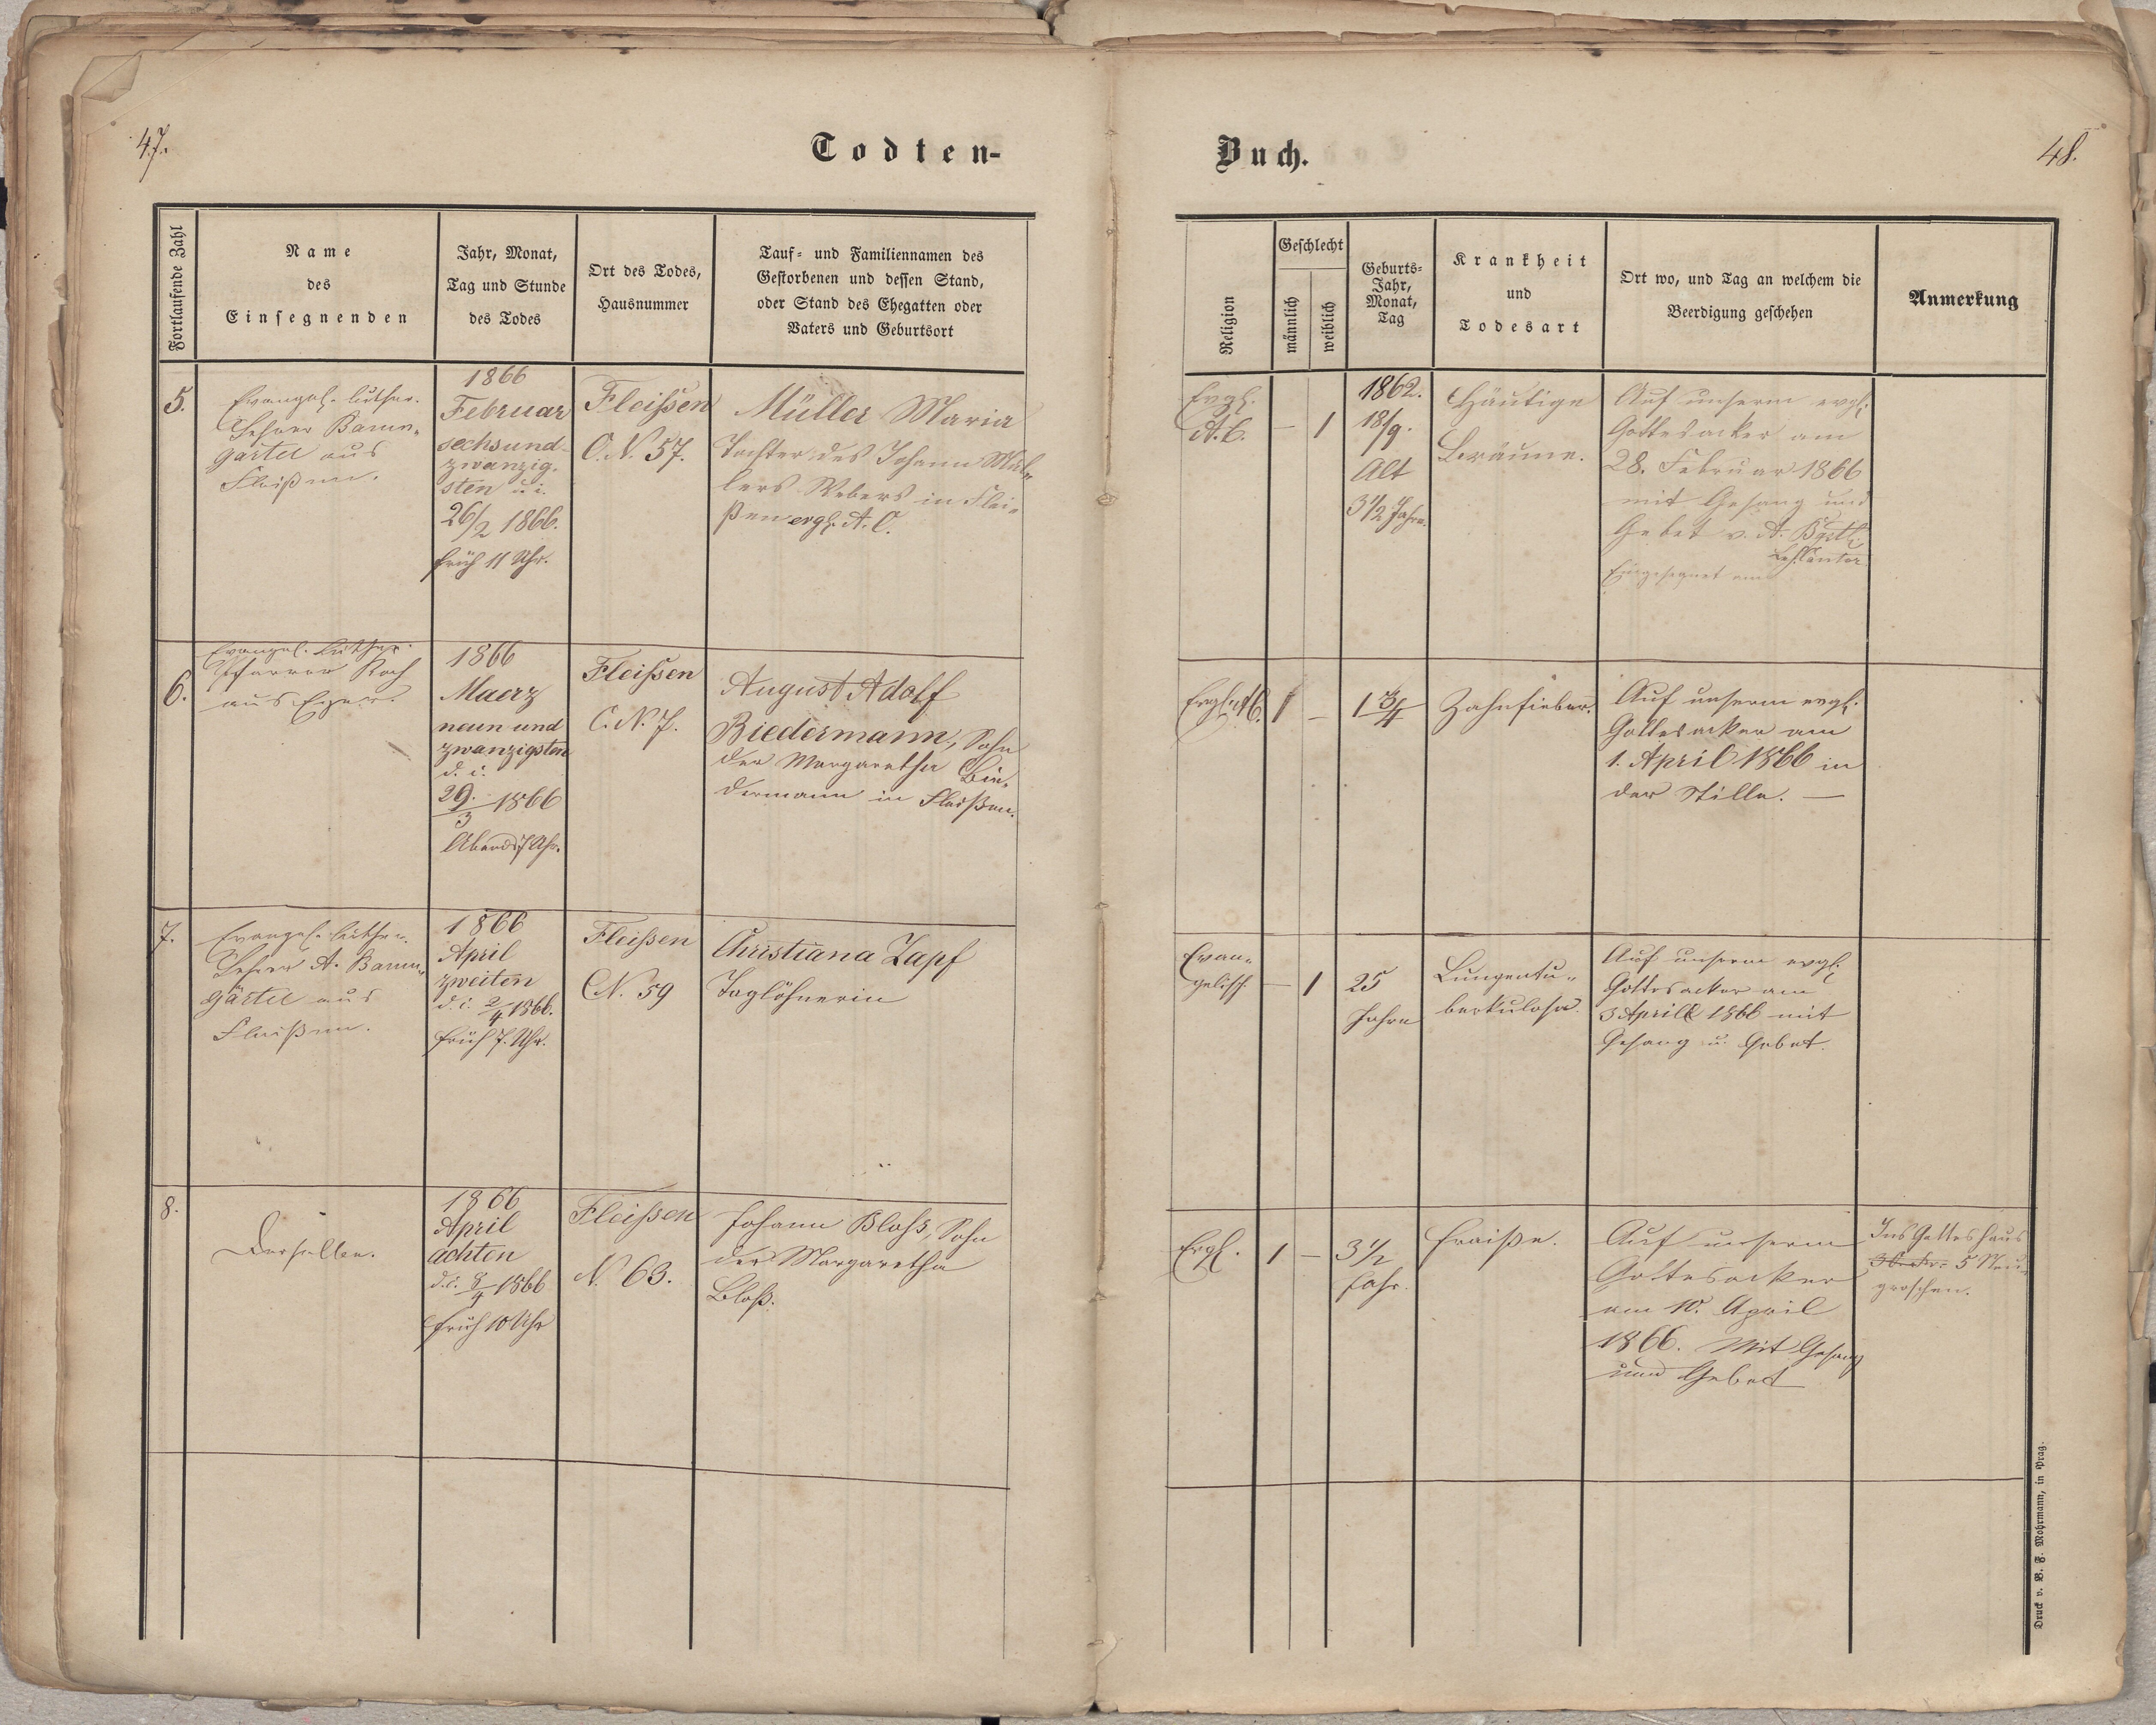 47.
Todten-
Fortlaufende Zahl
Name
des
Einsegnenden
Jahr, Monat,
Tag und Stunde
des Todes
Ort des Todes,
Hausnummer
Tauf- und Familiennamen des
Gestorbenen und dessen Stand,
oder Stand des Ehegatten oder
Vaters und Geburtsort
5.
Evangel. luther.
Lehrer Baum-
gärtel aus
Fleißen.
1866
Februar
sechsund-
zwanzig-
sten d. i.
26/2 1866.
früh 11 Uhr.
Fleißen
C.N. 57.
Müller Maria
Tochter des Johann Mül-
lers Webers in Flei-
ßen ergl. A. C.
6.
Evangel. Luther.
Pfarrer Koch
aus Eger.
1866
Maerz
neun und
zwanzigsten
d. i.
29./3 1866
Abends 7 Uhr.
Fleißen
C.N. 7.
August Adolf
Biedermann, Sohn
der Margaretha Bie-
dermann in Fleißen.
7.
Evangel. luther.
Lehrer A. Baum-
gärtel aus
Fleißen.
1866
April
zweiten
d. i. 2/4 1866.
früh 7. Uhr.
Fleißen
CN. 59
Christiana Zapf
Taglöhnerin
8.
Derselbe.
1866
April
achten
d. i. 8/4 1866
früh 10 Uhr
Fleißen
N. 63.
Johann Bloß, Sohn
der Margaretha
Bloß.
Buch.
48.
Religion
Geschlecht
männlich
weiblich
Geburts-
Jahr,
Monat,
Tag
Krankheit
und
Todesart
Ort wo, und Tag an welchem die
Beerdigung geschehen
Anmerkung
Evgl.
A. C.
—
1
1862.
18/9.
Alt
3 1/2 Jahre.
Häutige
Bräune.
Auf unserm evgl.
Gottesacker am
28. Februar 1866
mit Gesang und
Gebet v. A.
Cantor.
Eingesegnet
Evgl. A.C.
1
—
1 3/4
Zahnfieber.
Auf unserm evgl.
Gottesacker am
1. April 1866 in
der Stille. —
Evan-
gelisch
—
1
25
Jahre
Lungentu-
berkulose.
Auf unserm evgl.
Gottesacker am
3 April 1866 mit
Gesang u. Gebet.
Evgl.
1
—
3 1/2
Jahr.
Fraiße.
Auf unserm
Gottesacker
am 10. April
1866. Mit Gesang
und Gebet
Ins Gotteshaus
5 Neu-
groschen.
Druck v. B. F. Mohrmann, in Prag.